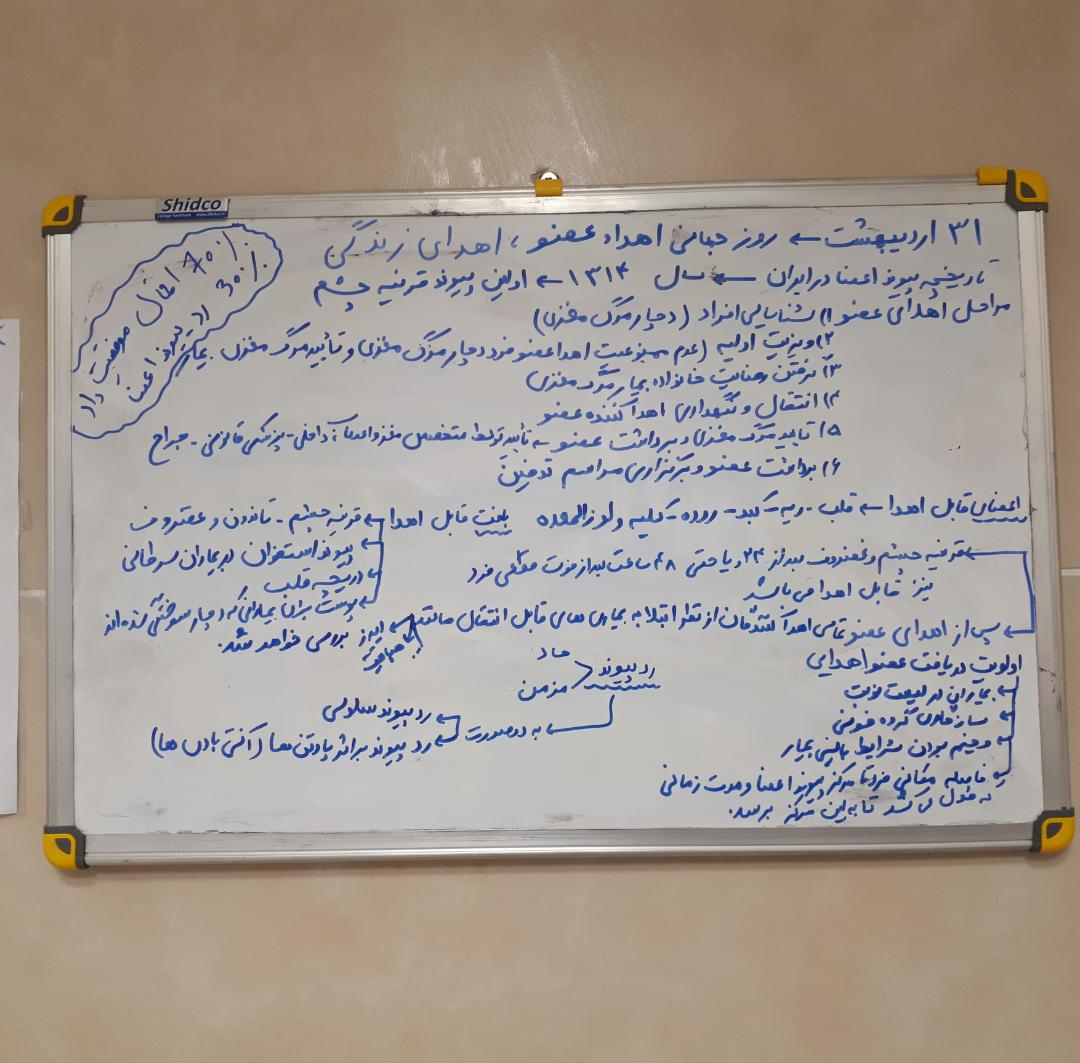 Shidco
۳۱ اردیبهشت ← روز جهانی اهداء عضو ، اهدای زندگی
تاریخچه پیوند اعضا در ایران ← سال ۱۳۱۴ ← اولین پیوند قرنیه چشم
مراحل اهدای عضو ۱) شناسایی افراد (دچار مرگ مغزی)
۲) ویزیت اولیه (عدم ممنوعیت اهدا عضو فرد دچار مرگ مغزی و تأیید مرگ مغزی بیمار
۳) گرفتن رضایت خانواده بیمار مرگ مغزی
۴) انتقال و نگهداری اهدا کننده عضو
۵) تایید مرگ مغزی و برداشت عضو ← تأیید توسط متخصص مغز و اعصاب: داخلی - پزشکی قانونی - جراح
۶) برداشت عضو و برگزاری مراسم تدفین
۷۰٪ احتمال موفقیت دارد
۳۰٪ رد پیوند اعضا
اعضای قابل اهدا ← قلب - ریه - کبد - روده - کلیه و لوزالمعده
بافت قابل اهدا ← قرنیه چشم - تاندون و غضروف
پیوند استخوان در بیماران سرطانی
دریچه قلب
پوست برای بیمارانی که دچار سوختگی شده اند
قرنیه چشم و غضروف بعد از ۲۴ و یا حتی ۴۸ ساعت بعد از موت قطعی فرد
نیز قابل اهدا می باشد
پس از اهدای عضو تمامی اهدا کنندگان از نظر ابتلا به بیماری های قابل انتقال مانند ← ایدز بررسی خواهد شد.
هپاتیت
اولویت دریافت عضو اهدایی
بیماران در لیست نوبت
سازگاری گروه خونی
وخیم بودن شرایط بالینی بیمار
فاصله مکانی فرد تا مرکز پیوند اعضا و مدت زمانی
که طول می کشد تا به این مرکز برسد.
رد پیوند
حاد
مزمن
← به دو صورت
رد پیوند سلولی
رد پیوند بر اثر پادتن ها (آنتی بادی ها)